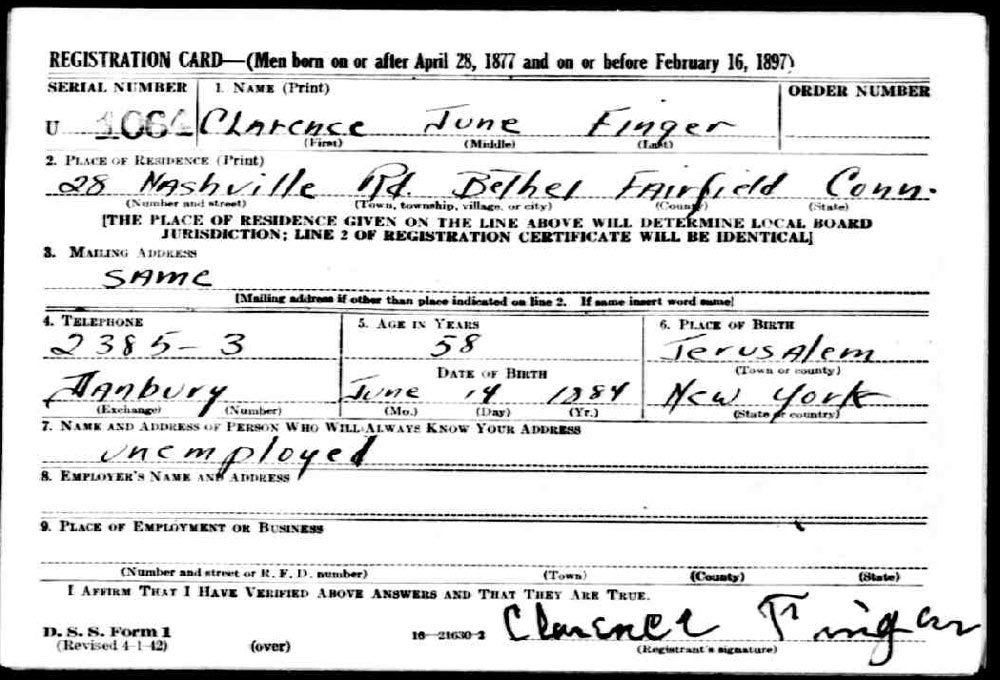 REGISTRATION CARD—(Men born on or after April 28, 1877 and on or before February 16, 1897)
SERIAL NUMBER 1. NAME (Print) ORDER NUMBER
U 1064 Clarence June Finger
(First) (Middle) (Last)
2. PLACE OF RESIDENCE (Print)
28 Nashville Rd. Bethel Fairfield Conn.
(Number and street) (Town, township, village, or city) (County) (State)
[THE PLACE OF RESIDENCE GIVEN ON THE LINE ABOVE WILL DETERMINE LOCAL BOARD
JURISDICTION; LINE 2 OF REGISTRATION CERTIFICATE WILL BE IDENTICAL]
3. MAILING ADDRESS
SAME
[Mailing address if other than place indicated on line 2. If same insert word same]
4. TELEPHONE 5. AGE IN YEARS 6. PLACE OF BIRTH
2385-3 58 Jerusalem
DATE OF BIRTH (Town or county)
Danbury June 14 1884 New York
(Exchange) (Number) (Mo.) (Day) (Yr.) (State or country)
7. NAME AND ADDRESS OF PERSON WHO WILL ALWAYS KNOW YOUR ADDRESS
unemployed
8. EMPLOYER'S NAME AND ADDRESS
9. PLACE OF EMPLOYMENT OR BUSINESS
(Number and street or R. F. D. number) (Town) (County) (State)
I AFFIRM THAT I HAVE VERIFIED ABOVE ANSWERS AND THAT THEY ARE TRUE.
D. S. S. Form 1 16—21630-2 Clarence Finger
(Revised 4-1-42) (over) (Registrant's signature)